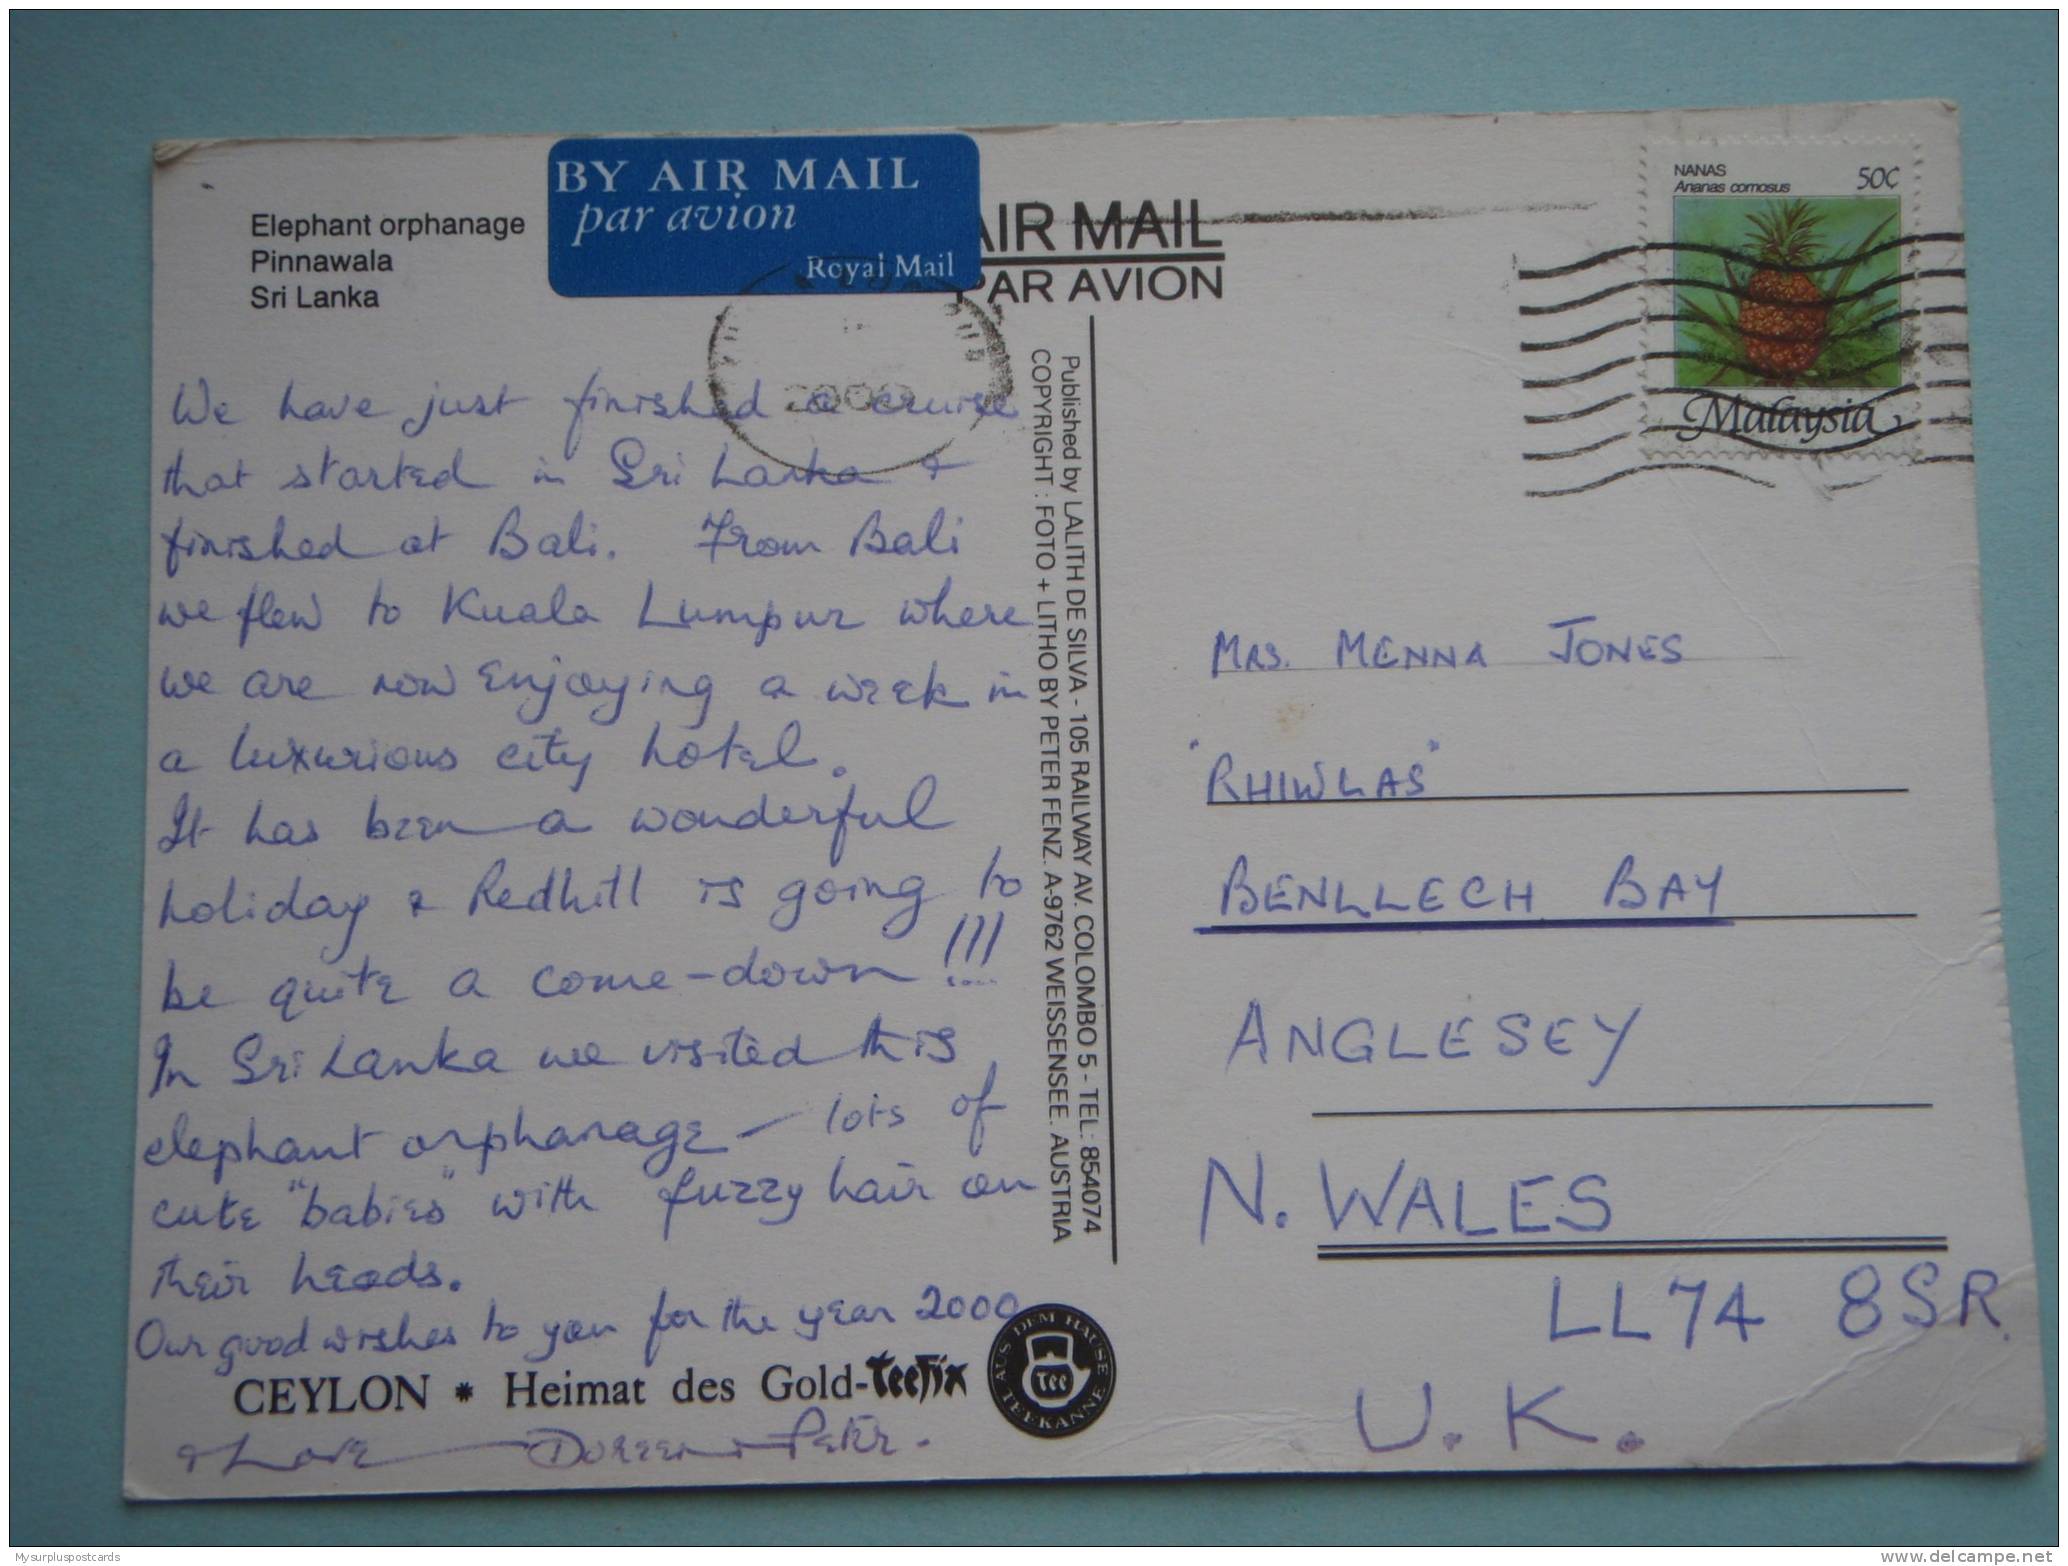 BY AIR MAIL
par avion
Royal Mail
Elephant orphanage
Pinnawala
Sri Lanka
AIR MAIL
PAR AVION
NANAS 50¢
Ananas comosus
Malaysia
2000
We have just finished a cruise
that started in Sri Lanka &
finished at Bali. From Bali
we flew to Kuala Lumpur where
we are now enjoying a week in
a luxurious city hotel.
It has been a wonderful
holiday & Redhill is going to
be quite a come-down!!!
In Sri Lanka we visited this
elephant orphanage - lots of
cute "babies" with fuzzy hair on
their heads.
Our good wishes to you for the year 2000
CEYLON * Heimat des Gold-TeeFix
AUS DEM HAUSE TEEKANNE
TEE
& Love Doreen & Peter.
Published by LALITH DE SILVA - 105 RAILWAY AV. COLOMBO 5 - TEL: 854074
COPYRIGHT: FOTO + LITHO BY PETER FENZ. A-9762 WEISSENSEE. AUSTRIA
MRS. MENNA JONES
"RHIWLAS"
BENLLECH BAY
ANGLESEY
N. WALES
LL74 8SR.
U.K.
Mysurpluspostcards
www.delcampe.net